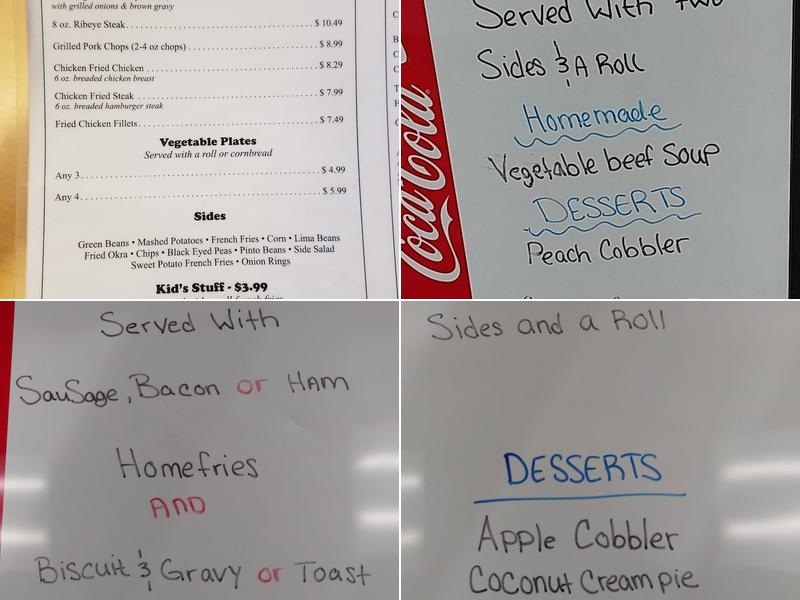 with grilled onions & brown gravy
8 oz. Ribeye Steak $ 10.49
Grilled Pork Chops (2-4 oz chops) $ 8.99
Chicken Fried Chicken $ 8.29
6 oz. breaded chicken breast
Chicken Fried Steak $ 7.99
6 oz. breaded hamburger steak
Fried Chicken Fillets $ 7.49
Vegetable Plates
Served with a roll or cornbread
Any 3 $ 4.99
Any 4 $ 5.99
Sides
Green Beans • Mashed Potatoes • French Fries • Corn • Lima Beans
Fried Okra • Chips • Black Eyed Peas • Pinto Beans • Side Salad
Sweet Potato French Fries • Onion Rings
Kid's Stuff - $3.99
Coca-Cola
Served With Two
Sides & A Roll
Homemade
Vegetable beef Soup
DESSERTS
Peach Cobbler
Served With
Sausage, Bacon or Ham
Homefries
AND
Biscuit & Gravy or Toast
Sides and a Roll
DESSERTS
Apple Cobbler
Coconut Cream pie